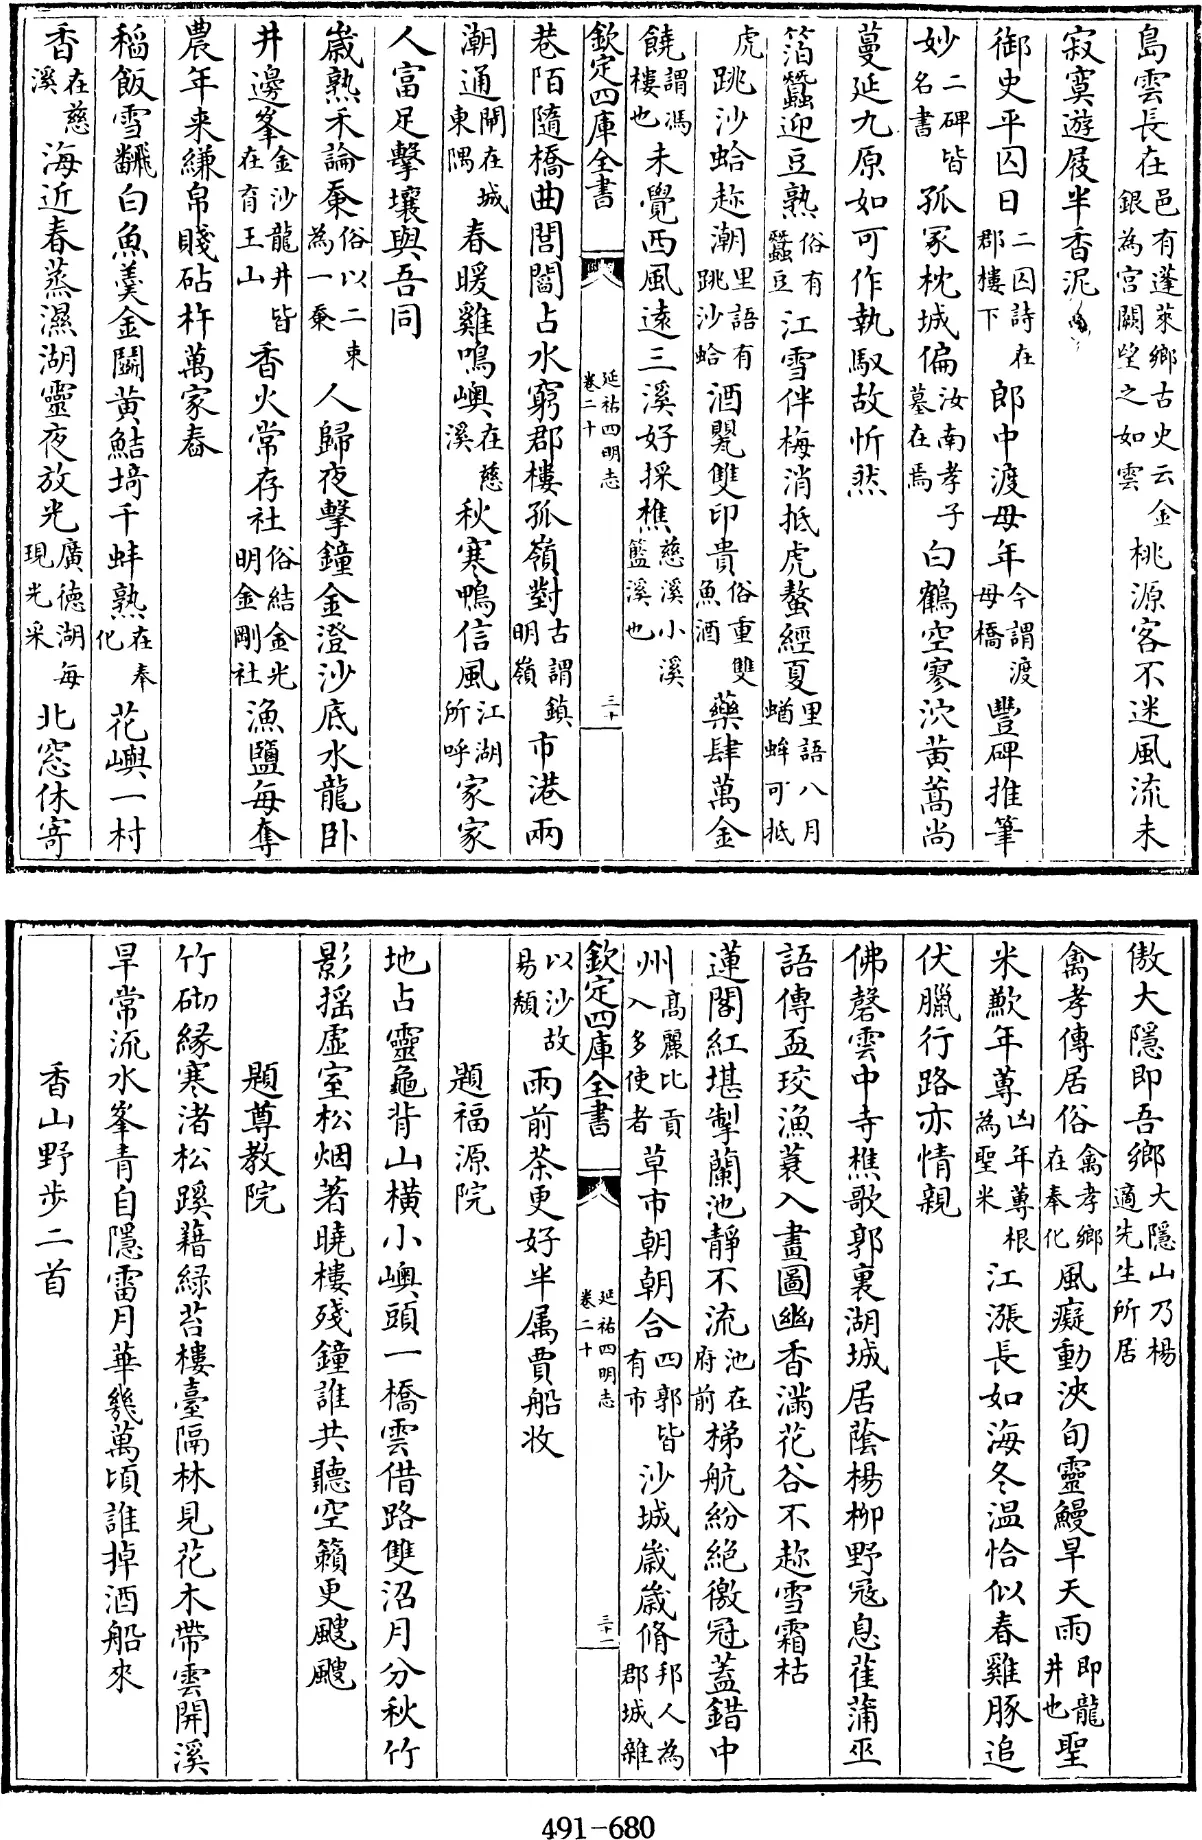 島雲長在邑有蓬萊鄉古史云金銀為宮闕望之如雲桃源客不迷風流未
寂寞遊屐半香泥
御史平囚日二囚詩在郡樓下郎中渡母年今謂渡母橋豐碑推筆
妙二碑皆名書孤冢枕城偏汝南孝子墓在焉白鶴空寥泬黄蒿尚
蔓延九原如可作執馭故忻然
箔蠶迎豆熟俗有蠶豆江雪伴梅消抵虎螯經夏里語八月蝤蛑可抵
虎跳沙蛤趂潮里語有跳沙蛤酒甖雙印貴俗重雙魚酒藥肆萬金
饒謂馮樓也未覺西風遠三溪好採樵慈溪小溪籃溪也
欽定四庫全書 延祐四明志卷二十 三十
巷陌隨橋曲閭閻占水窮郡樓孤嶺對古謂鎮明嶺市港兩
潮通閘在城東隅春暖雞鳴嶼在慈溪秋寒鴨信風江湖所呼家家
人富足擊壤與吾同
歲熟禾論秉俗以二束為一秉人歸夜擊鐘金澄沙底水龍卧
井邊峯金沙龍井皆在育王山香火常存社俗結金光明金剛社漁鹽每奪
農年来縑帛賤砧杵萬家舂
稻飯雪飜白魚羮金鬬黄鮚埼千蚌熟在奉化花嶼一村
香在慈溪海近春蒸濕湖靈夜放光廣德湖每現光采北窓休寄
傲大隱即吾鄉大隱山乃楊適先生所居
禽孝傳居俗禽孝鄉在奉化風癡動浹旬靈鰻旱天雨即龍聖井也
米歉年尊凶年蓴根為聖米江漲長如海冬温恰似春雞豚追
伏臘行路亦情親
佛磬雲中寺樵歌郭裏湖城居蔭楊栁野冦息萑蒲巫
語傳盃珓漁蓑入畫圖幽香滿花谷不趂雪霜枯
蓮閣紅堪掣蘭池靜不流池在府前梯航紛絶徼冠蓋錯中
州高麗比貢入多使者草市朝朝合四郭皆有市沙城歲歲脩邦人為郡城雜
欽定四庫全書 延祐四明志卷二十 三十一
以沙故易頽雨前茶更好半属賈船收
題福源院
地占靈龜背山橫小嶼頭一橋雲借路雙沼月分秋竹
影揺虚室松烟著曉樓殘鐘誰共聽空籟更颼颼
題尊教院
竹砌縁寒渚松蹊藉緑苔樓臺隔林見花木帶雲開溪
旱常流水峯青自隱雷月華幾萬頃誰掉酒船來
香山野歩二首
491-680